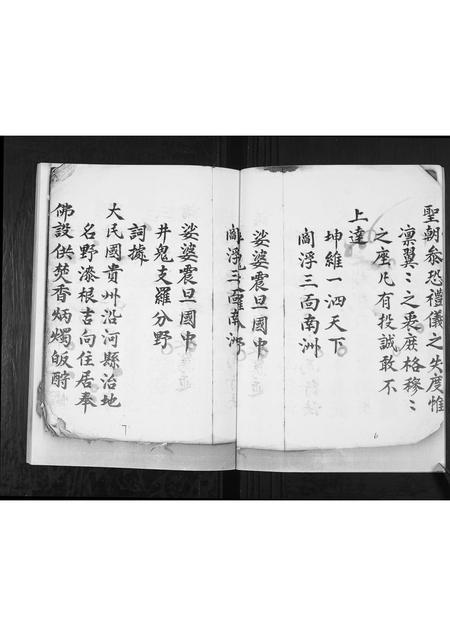 聖朝叅恐禮儀之失度惟
凛翼〻之衷庶格穆〻
之座凡有投誠敢不
上達
坤維一泗天下
閻浮三面南洲
娑婆震旦國中
6
娑婆震旦國中
井鬼支羅分野
詞據
大民國貴州沿河縣治地
名野漆根吉向住居奉
佛設供焚香炳燭皈酧
7